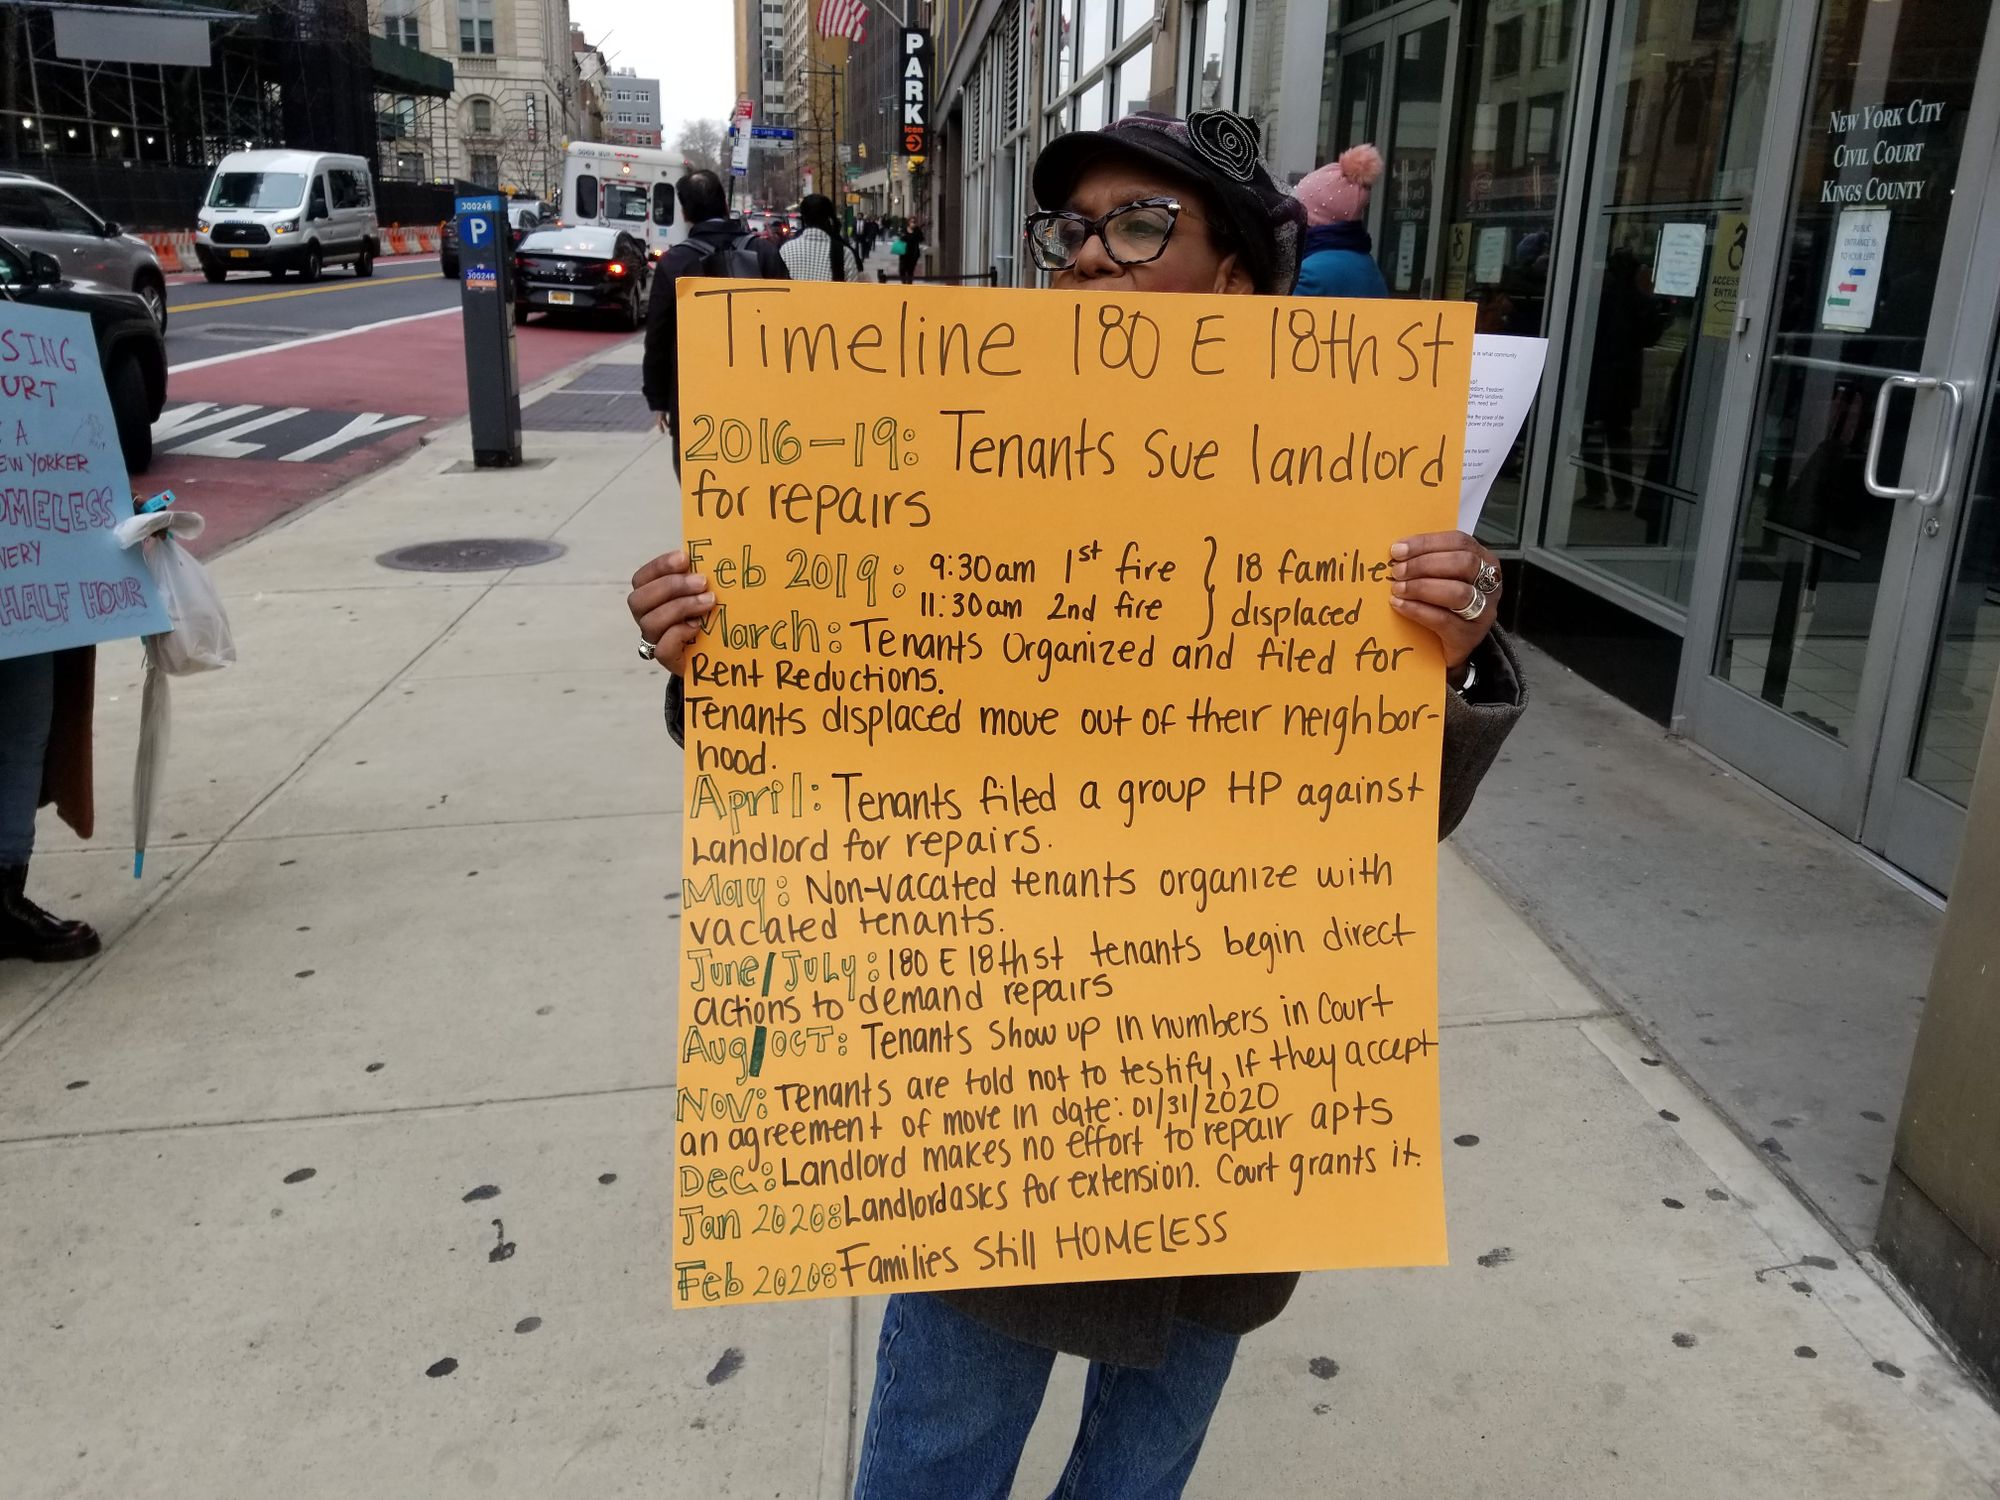 Timeline 180 E 18th St
2016-19: Tenants sue landlord
for repairs
Feb 2019: 9:30am 1st fire } 18 families
11:30am 2nd fire } displaced
March: Tenants Organized and filed for
Rent Reductions.
Tenants displaced move out of their neighbor-
hood.
April: Tenants filed a group HP against
Landlord for repairs.
May: Non-vacated tenants organize with
vacated tenants.
June/July: 180 E 18th st tenants begin direct
actions to demand repairs
Aug/OCT: Tenants show up in numbers in Court
Nov: Tenants are told not to testify, if they accept
an agreement of move in date: 01/31/2020
Dec: Landlord makes no effort to repair apts
Jan 2020: Landlord asks for extension. Court grants it.
Feb 2020: Families Still HOMELESS
SING
URT
A
EW YORKER
OMELESS
VERY
HALF HOUR
300246
P
300246
PARK
icon
NEW YORK CITY
CIVIL COURT
KINGS COUNTY
PUBLIC
ENTRANCE IS
TO YOUR LEFT
ACCESS
ENTRA
NLY